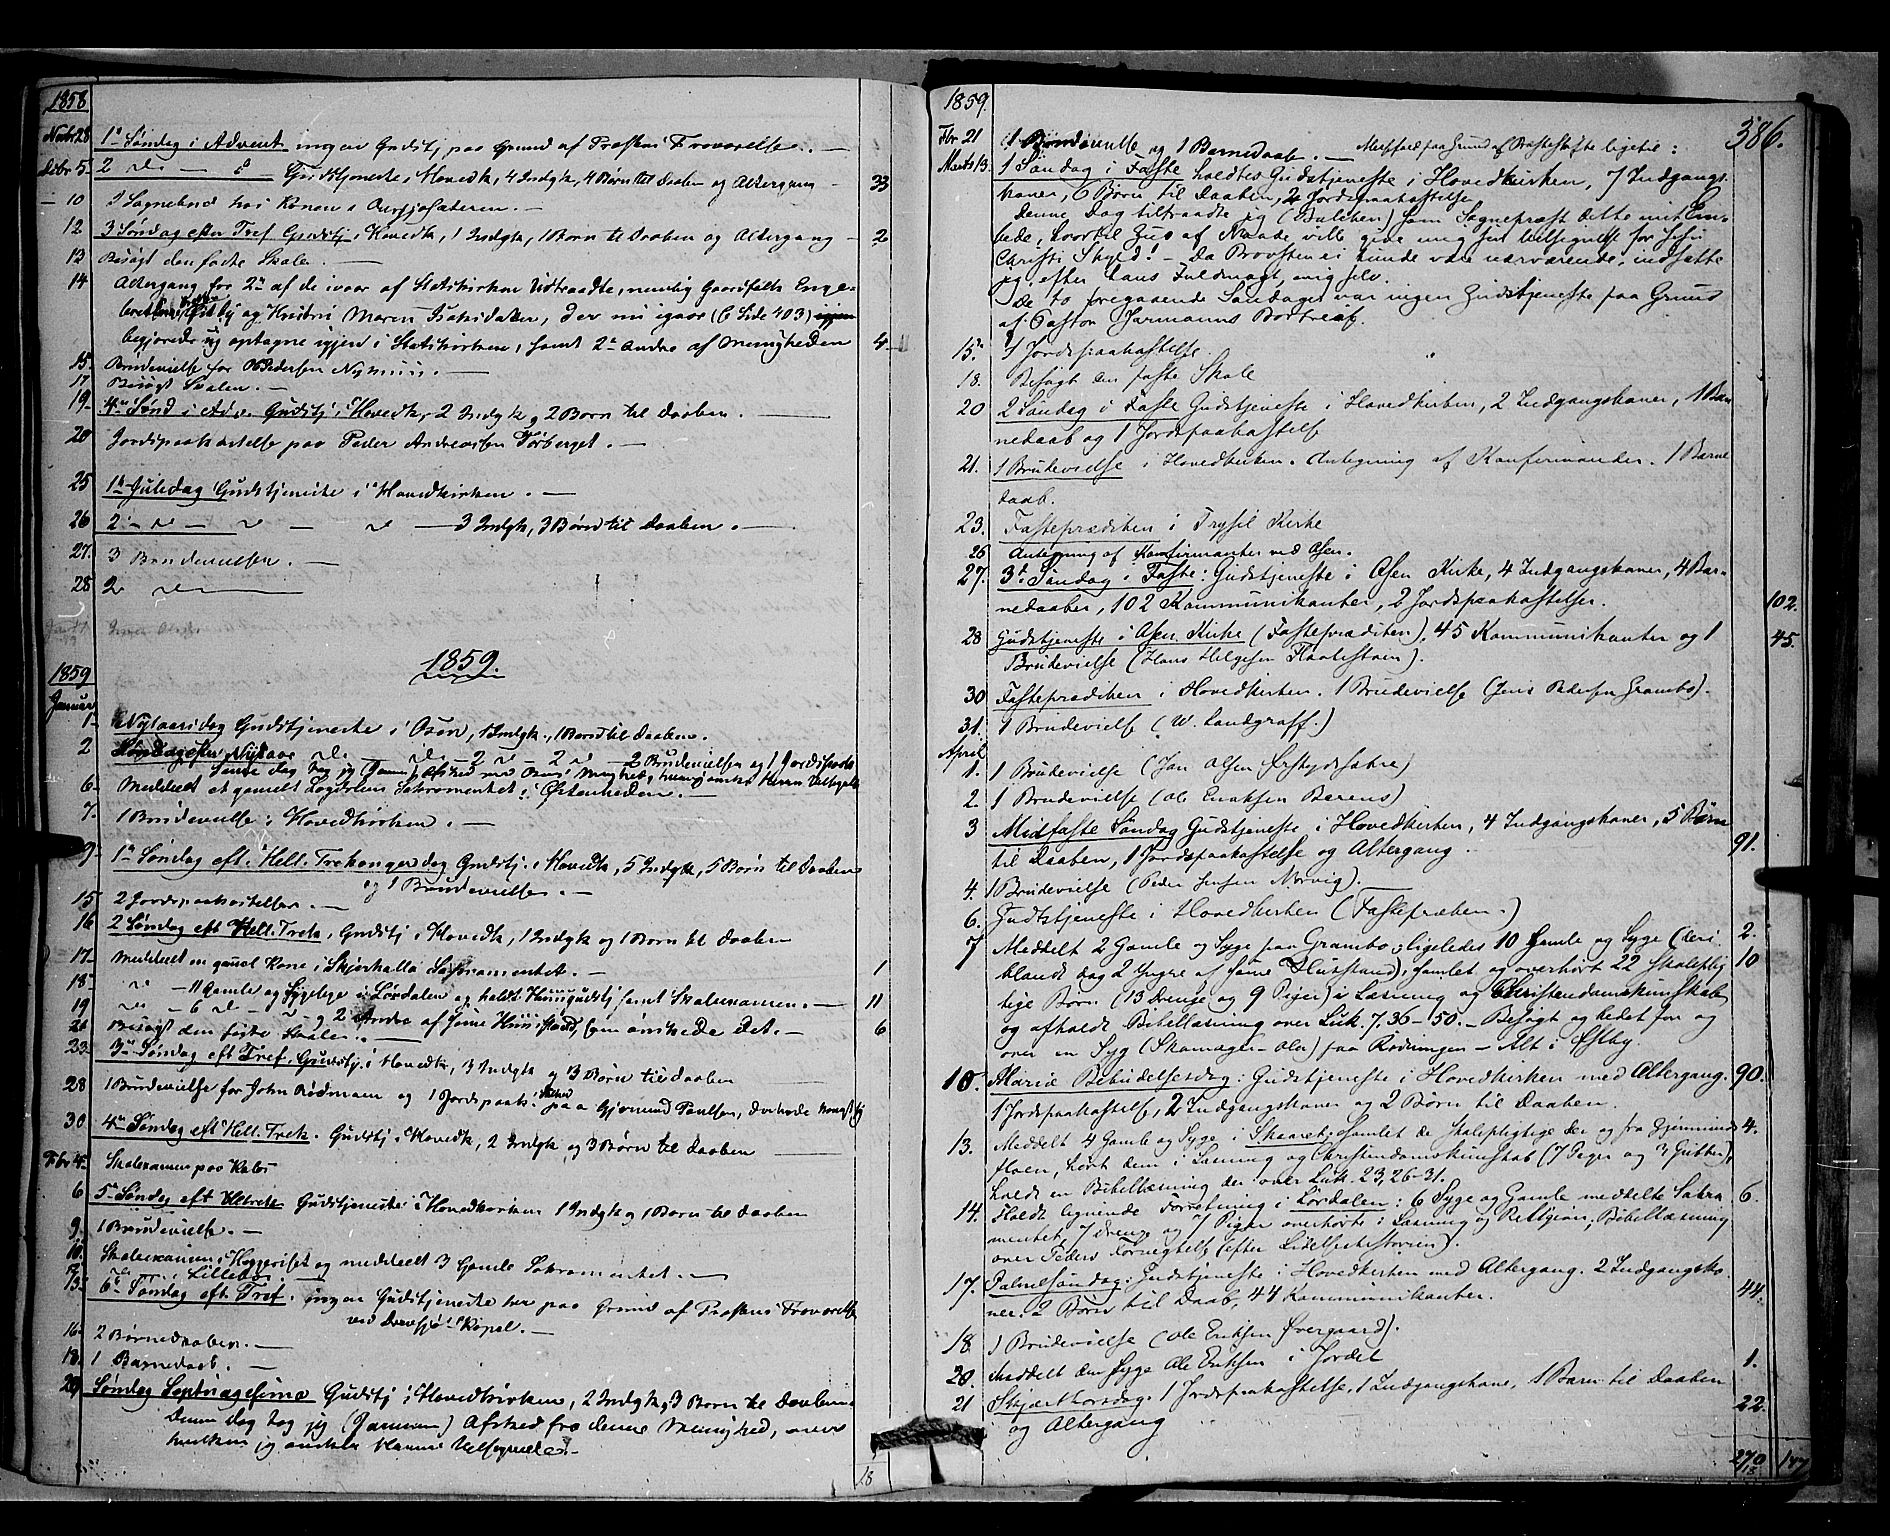 1858
Novbr 28 1e Søndag i Advent ingen Gudstj paa Grund af Præstens Fraværelse. —
Debr 5 2 — Gudstjeneste i Hovedk, 4 Indgk, 4 Børn til Daaben og Altergang — 33
— 10 i Sognebud hos Konen
12 3 Søndag Gudstj i Hovedk, 1 Indgk, 1 Børn til Daaben og Altergang — 2
13 Besøgt den faste Skole. —
14 Altergang for 2 af de ivaar af Statskirken Udtraadte, nemlig
og Maren der nu igaar (6 Side 403) igjen
begjærede sig optagne igjen i Statskirken, samt 2 Andre af Menigheden 4
15 Brudevielse for Pedersen
17 Besøgt Skolen. —
19 4de Sønd i Adv. Gudstj i Hovedk, 2 Indgk og 2 Børn til Daaben. —
20 Jordspaakastelse paa Peder Andreassen Torberget. —
25 1ste Juledag Gudstjeneste i Hovedkirken. —
26 2 — 3 Indgk, 3 Børn til Daaben. —
27. 3 Brudevielser. —
28 2
1859.
1859
Januar
1 Nytaarsdag Gudstjeneste i Osen, 1 Indgk, 1 Børn til Daaben.
2 Søndag efter Nytaar 2 2 2 Brudevielser og 1 Jordspaak
Denne Dag tog jeg Afsked med Osens Menighed,
6 Meddeelt et gamelt Sakramentet i Østenheden. —
7. 1 Brudevielse i Hovedkirken. —
9 1e Søndag eft. Hell. Trekongersdag Gudstj. i Hovedk, 5 Indgk, 5 Børn til Daaben
og 1 Brudevielse. —
15 2 Jordspaakastelser. —
16 2 Søndag eft Hell. Trek, Gudstj i Hovedk, 1 Indgk og 1 Børn til Daaben
17 Meddeelt en gamel Kone i Skjærhalla Sakramentet. — 1
18 — 11 Gamle og Sygelige i Lørdalen og holdt Huusgudstj samt Skoleexamen. — 11
19 — 6 og 2 Andre af samme Huusstand, som ønskede det. — 6
21 Besøgt den faste Skole. —
23 3e Søndag eft Tref. Gudstj i Hovedk, 3 Indgk og 3 Børn til Daaben
28 1 Brudevielse for John Rødmoen og 1 Jordspaak: paa Gjermund Paulsen,
30 4e Søndag eft Hell. Trek. Gudstj i Hovedk, 2 Indgk og 3 Børn til Daaben —
Fbr 4 Skoleexamen paa
6 5e Søndag eft Helltrek Gudstjeneste i Hovedkirken 1 Indgk og 1 Børn til Daaben
9 1 Brudevielse. —
10 Skoleexamen i og meddeelt 3 Gamle Sakramentet. —
i Lillebo
13 6e Søndag eft Tref. ingen Gudstjeneste her paa Grund af Præstens Fraværelse
ved Drevsjø Kapel. —
16 2 Børnedaaben. —
18. 1 Barnedaab. —
20 Søndag Septuagesima Gudstj i Hovedkirken, 2 Indgk, 3 Børn til Daaben
Denne Dag tog jeg Afsked fra denne Menighed, over
hvilken jeg ønsker Herrens Velsignelse. —
18
1859. 386.
Fbr 21 1 Brudevielse og 1 Barnedaab. —
Marts 13. 1 Søndag i Faste holdtes Gudstjeneste i Hovedkirken, 7 Indgangs-
koner, 6 Børn til Daaben, 4 Jordspaakastelse
Denne Dag tiltraadte jeg som Sognepræst dette mit Em-
bede, hvortil Gud af Naade ville give mig sin Velsignelse for Jesu
Christi Skyld! – Da Provsten ei kunde være nærværende, indsatte
jeg, efter hans Fuldmagt, mig selv.
De to foregaaende Søndage var ingen Gudstjeneste paa Grund
af Pastor Jarmanns Bortreise.
15de 1 Jordspaakastelse.
18. Besøgt den faste Skole
20 2 Søndag i Faste Gudstjeneste i Hovedkirken, 2 Indgangskoner, 1 Bar-
nedaab og 1 Jordspaakastelse
21. 1 Brudevielse i Hovedkirken. Antegning af Konfirmander. 1 Barne
daab.
23. Fasteprædiken i Trysil Kirke
26 Antegning af Konfirmanter ved Osen.
27. 3de Søndag i Faste: Gudstjeneste i Osen Kirke, 4 Indgangskoner, 4 Bar-
nedaaber, 102 Kommunikanter, 2 Jordspaakastelser. 102.
28 Gudstjeneste i Osen Kirke (Fasteprædiken), 45 Kommunikanter og 1 45.
Brudevielse (Hans Helgesen
30 Fasteprædiken i Hovedkirken. 1 Brudevielse (Jens Pedersen Grambo).
31. 1 Brudevielse (W. Landgraff.)
April
1. 1 Brudevielse (Jan Olsen
2. 1 Brudevielse (Ole Eriksen Berens)
3 Midfaste Søndag Gudstjeneste i Hovedkirken, 4 Indgangskoner, 5 Børn
til Daaben, 1 Jordspaakastelse og Altergang. 91.
4. 1 Brudevielse (Peder Jensen Nervig).
6. Gudstjeneste i Hovedkirken (Fastepræken.)
7 Meddelt 2 Gamle og Syge paa Grambo; ligeledes 10 Gamle og Syge (deri- 2.
blandt dog 2 Yngre af samme Husstand), samlet og overhørt 22 skoleplig- 10
tige Børn (13 Drenge og 9 Piger) i Læsning og Christendomskunskab
og afholdt Bibellæsning over Luk. 7, 36–50. – Besøgt og bedet for og
over en Syg (Skomager-Ole) paa Rødningen – Alt i Østby.
10. Mariæ Bebudelsesdag: Gudstjeneste i Hovedkirken med Altergang. 90.
1 Jordspaakastelse, 2 Indgangskoner og 2 Børn til Daaben.
13. Meddelt 4 Gamle og Syge i Skaaret; samlet de skolepligtige der og fra 4.
hørt dem i Læsning og Christendomskunskab (7 Piger og 3 Gutter),
holdt en Bibellæsning der over Luk. 23, 26–31.
14. Holdt lignende Forretning i Lørdalen: 6 Syge og Gamle meddelte Sakra- 6.
mentet, 7 Drenge og 7 Piger overhørte i Læsning og Religion; Bibellæsning
over Peders Fornegtelse (efter Lidelseshistorien).
17. Palmesøndag: Gudstjeneste i Hovedkirken med Altergang. 2 Indgangsko-
ner. 2 Børn til Daab, 44 Kommunikanter. 44.
18. 1 Brudevielse (Ole Eriksen Øvergaard).
20. Meddelt den syge Ole Eriksen i Jordet 1.
21 Skjærthorsdag. 1 Jordspaakastelse, 1 Indgangskone, 1 Barn til Daaben
og Altergang 22.
270 147
18